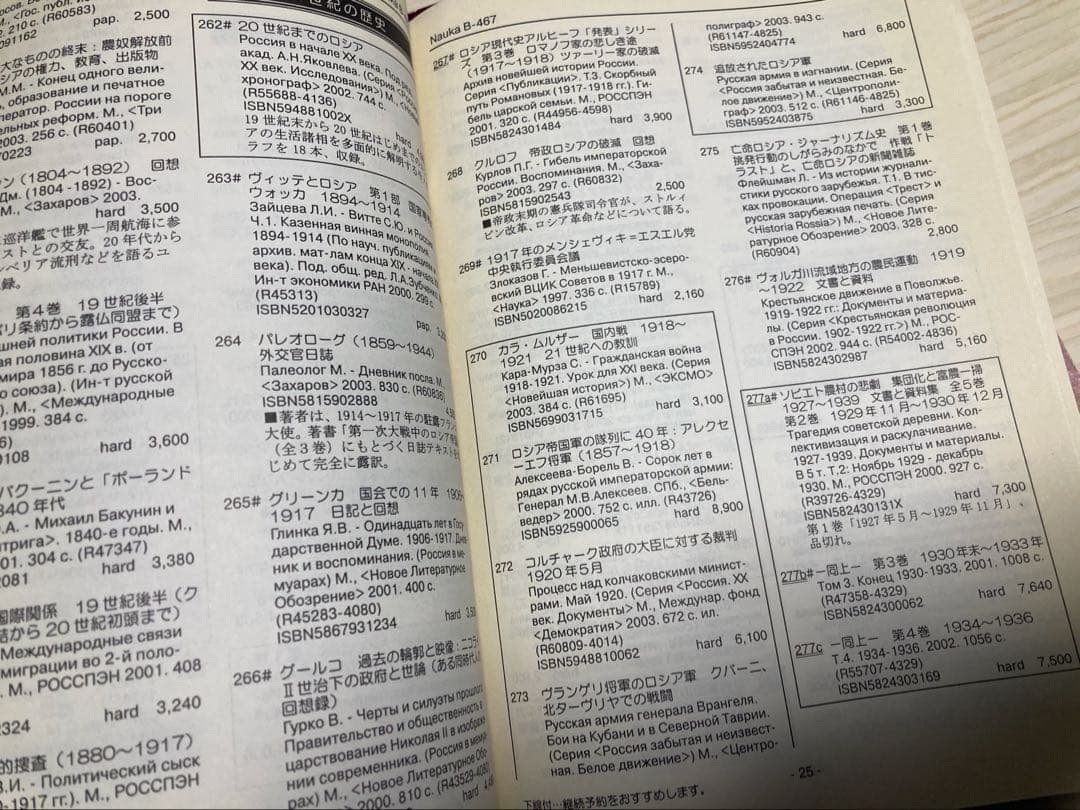 pap. 2,500
091162
大なものの終末：農奴解放前
シアの権力、教育、出版物
М.М. - Конец одного вели-
, образование и печатное
ператор. России на пороге
ельных реформ. М., <Три
03. 256 с. (R60401)
70223 pap. 2,700
ン（1804～1892） 回想
Дм. (1804 - 1892) - Вос-
М., <Захаров> 2003.
hard 3,500
巡洋艦で世界一周航海に参
ストとの交友。20年代から
ベリア流刑などを語るユ
録。
第4巻 19世紀後半
パリ条約から露仏同盟まで）
шней политики России. В
ая половина XIX в. (от
мира 1856 г. до Русско-
о союза). (Ин-т русской
) М., <Международные
1999. 384 с.
9108 hard 3,600
バクーニンと「ポーランド
840年代
О.А. - Михаил Бакунин и
трига>. 1840-е годы. М.,
01. 304 с. (R47347)
2081 hard 3,380
国際関係 19世紀後半（ク
結から20世紀初頭まで）
Международные связи
миграции во 2-й поло-
. М., РОССПЭН 2001. 408
2324 hard 3,240
的捜査（1880～1917）
З.И. - Политический сыск
0-1917 гг.). М., РОССПЭН
紀の歴史
262# 20世紀までのロシア
Россия в начале XX века. Под ред.
акад. А.Н.Яковлева. (Серия
XX век. Исследования>)
хронограф> 2002. 744 с.
(R55688-4136)
ISBN594881002X hard
19世紀末から20世紀はじめまでの
アの生活諸相を多面的に解明する
ラフを18本、収録。
263# ヴィッテとロシア 第1部 国家専売
ウォッカ 1894～1914
Зайцева Л.И. - Витте С.Ю. и Россия
Ч.1. Казенная винная монополия
1894-1914 (По науч. публикациям и
архив. мат-лам конца XIX - начала
века). Под. общ. ред. Л.А.Зубченко
Ин-т экономики РАН 2000. 299 с.
(R45313)
ISBN5201030327 pap.
264 パレオローグ（1859～1944）
外交官日誌
Палеолог М. - Дневник посла. М.,
<Захаров> 2003. 830 с. (R60836)
ISBN5815902888
■著者は、1914～1917年の駐露フランス
大使。著書「第一次大戦中のロシア帝
（全3巻）にもとづく日誌テキストを
じめて完全に露訳。
265# グリーンカ 国会での11年 1906～
1917 日記と回想
Глинка Я.В. - Одинадцать лет в Госу
дарственной Думе. 1906-1917. Днев
ник и воспоминания. (Россия в ме-
муарах) М., <Новое Литературное
Обозрение> 2001. 400 с.
(R45283-4080) hard
ISBN5867931234
266# グールコ 過去の輪郭と映像：ニコラ
Ⅱ世治下の政府と世論（ある同時代人の
回想録）
Гурко В. - Черты и силуэты прошлого
Правительство и общественность в
царствование Николая II в изображе
нии современника. (Россия в мемуа
рах) М., <Новое Литературное Обо
зрение> 2000. 810 с. (R43529-4080)
hard
Nauka B-467
267# ロシア現代史アルヒーフ「発表」シリー
ズ 第3巻 ロマノフ家の悲しき途
（1917～1918）ツァーリー家の破滅
Архив новейшей истории России.
Серия <Публикации>. Т.3. Скорбный
путь Романовых (1917-1918 гг.). Ги-
бель царской семьи. М., РОССПЭН
2001. 320 с. (R44956-4598)
ISBN5824301484 hard 3,900
268 クルロフ 帝政ロシアの破滅 回想
Курлов П.Г. - Гибель императорской
России. Воспоминания. М., <Заха-
ров> 2003. 297 с. (R60832)
ISBN5815902543 2,500
■帝政末期の憲兵隊司令官が、ストルィ
ピン改革、ロシア革命などについて語る。
269# 1917年のメンシェヴィキ＝エスエル党
中央執行委員会議
Злоказов Г. - Меньшевистско-эсеро-
вский ВЦИК Советов в 1917 г. М.,
<Наука> 1997. 336 с. (R15789)
ISBN5020086215 hard 2,160
270 カラ・ムルザー 国内戦 1918～
1921 21世紀への教訓
Кара-Мурза С. - Гражданская война
1918-1921. Урок для XXI века. (Серия
<Новейшая история>) М., <ЭКСМО>
2003. 384 с. (R61695)
ISBN5699031715 hard 3,100
271 ロシア帝国軍の隊列に40年：アレクセ
ーエフ将軍（1857～1918）
Алексеева-Борель В. - Сорок лет в
рядах русской императорской армии:
Генерал М.В.Алексеев. СПб., <Бель-
ведер> 2000. 752 с. илл. (R43726)
ISBN5925900065 hard 8,900
272 コルチャーク政府の大臣に対する裁判
1920年5月
Процесс над колчаковскими министг-
рами. Май 1920. (Серия <Россия. XX
век. Документы>) М., Междунар. фонд
<Демократия> 2003. 672 с. ил.
(R60809-4014)
ISBN5948810062 hard 6,100
273 ヴランゲリ将軍のロシア軍 クバーニ、
北ターヴリヤでの戦闘
Русская армия генерала Врангеля.
Бои на Кубани и в Северной Таврии.
(Серия <Россия забытая и неизвест-
ная. Белое движение>) М., <Центро-
полиграф> 2003. 943 с.
(R61147-4825)
ISBN5952404774 hard 6,800
274 追放されたロシア軍
Русская армия в изгнании. (Серия
<Россия забытая и неизвестная. Бе-
лое движение>) М., <Центрополи-
граф> 2003. 512 с. (R61146-4825)
ISBN5952403875 hard 3,300
275 亡命ロシア・ジャーナリズム史 第1巻
挑発行動のしがらみのなかで 作戦「ト
ラスト」と、亡命ロシアの新聞雑誌
Флейшман Л. - Из истории журнали-
стики русского зарубежья. Т.1. В тис-
ках провокации. Операция <Трест> и
русская зарубежная печать. (Серия
<Historia Rossia>) М., <Новое Лите-
ратурное Обозрение> 2003. 328 с.
(R60904) 2,800
276# ヴォルガ川流域地方の農民運動 1919
～1922 文書と資料
Крестьянское движение в Поволжье.
1919-1922 гг.: Документы и материа-
лы. (Серия <Крестьянская революция
в России. 1902-1922 гг.>) М., РОС-
СПЭН 2002. 944 с. (R54002-4836)
ISBN5824302987 hard 5,160
277a# ソビエト農村の悲劇 集団化と富農一掃
1927～1939 文書と資料集 全5巻
第2巻 1929年11月～1930年12月
Трагедия советской деревни. Кол-
лективизация и раскулачивание.
1927-1939. Документы и материалы.
В 5 т. Т.2: Ноябрь 1929 - декабрь
1930. М., РОССПЭН 2000. 927 с.
(R39726-4329)
ISBN582430131X hard 7,300
第1巻「1927年5月～1929年11月」、
品切れ。
277b# ー同上ー 第3巻 1930年末～1933年
Том 3. Конец 1930-1933. 2001. 1008 с.
(R47358-4329)
ISBN5824300062 hard 7,640
277c ー同上ー 第4巻 1934～1936
Т.4. 1934-1936. 2002. 1056 с.
(R55707-4329)
ISBN5824303169 hard 7,500
- 25 -
下線付…継続予約をおすすめします。